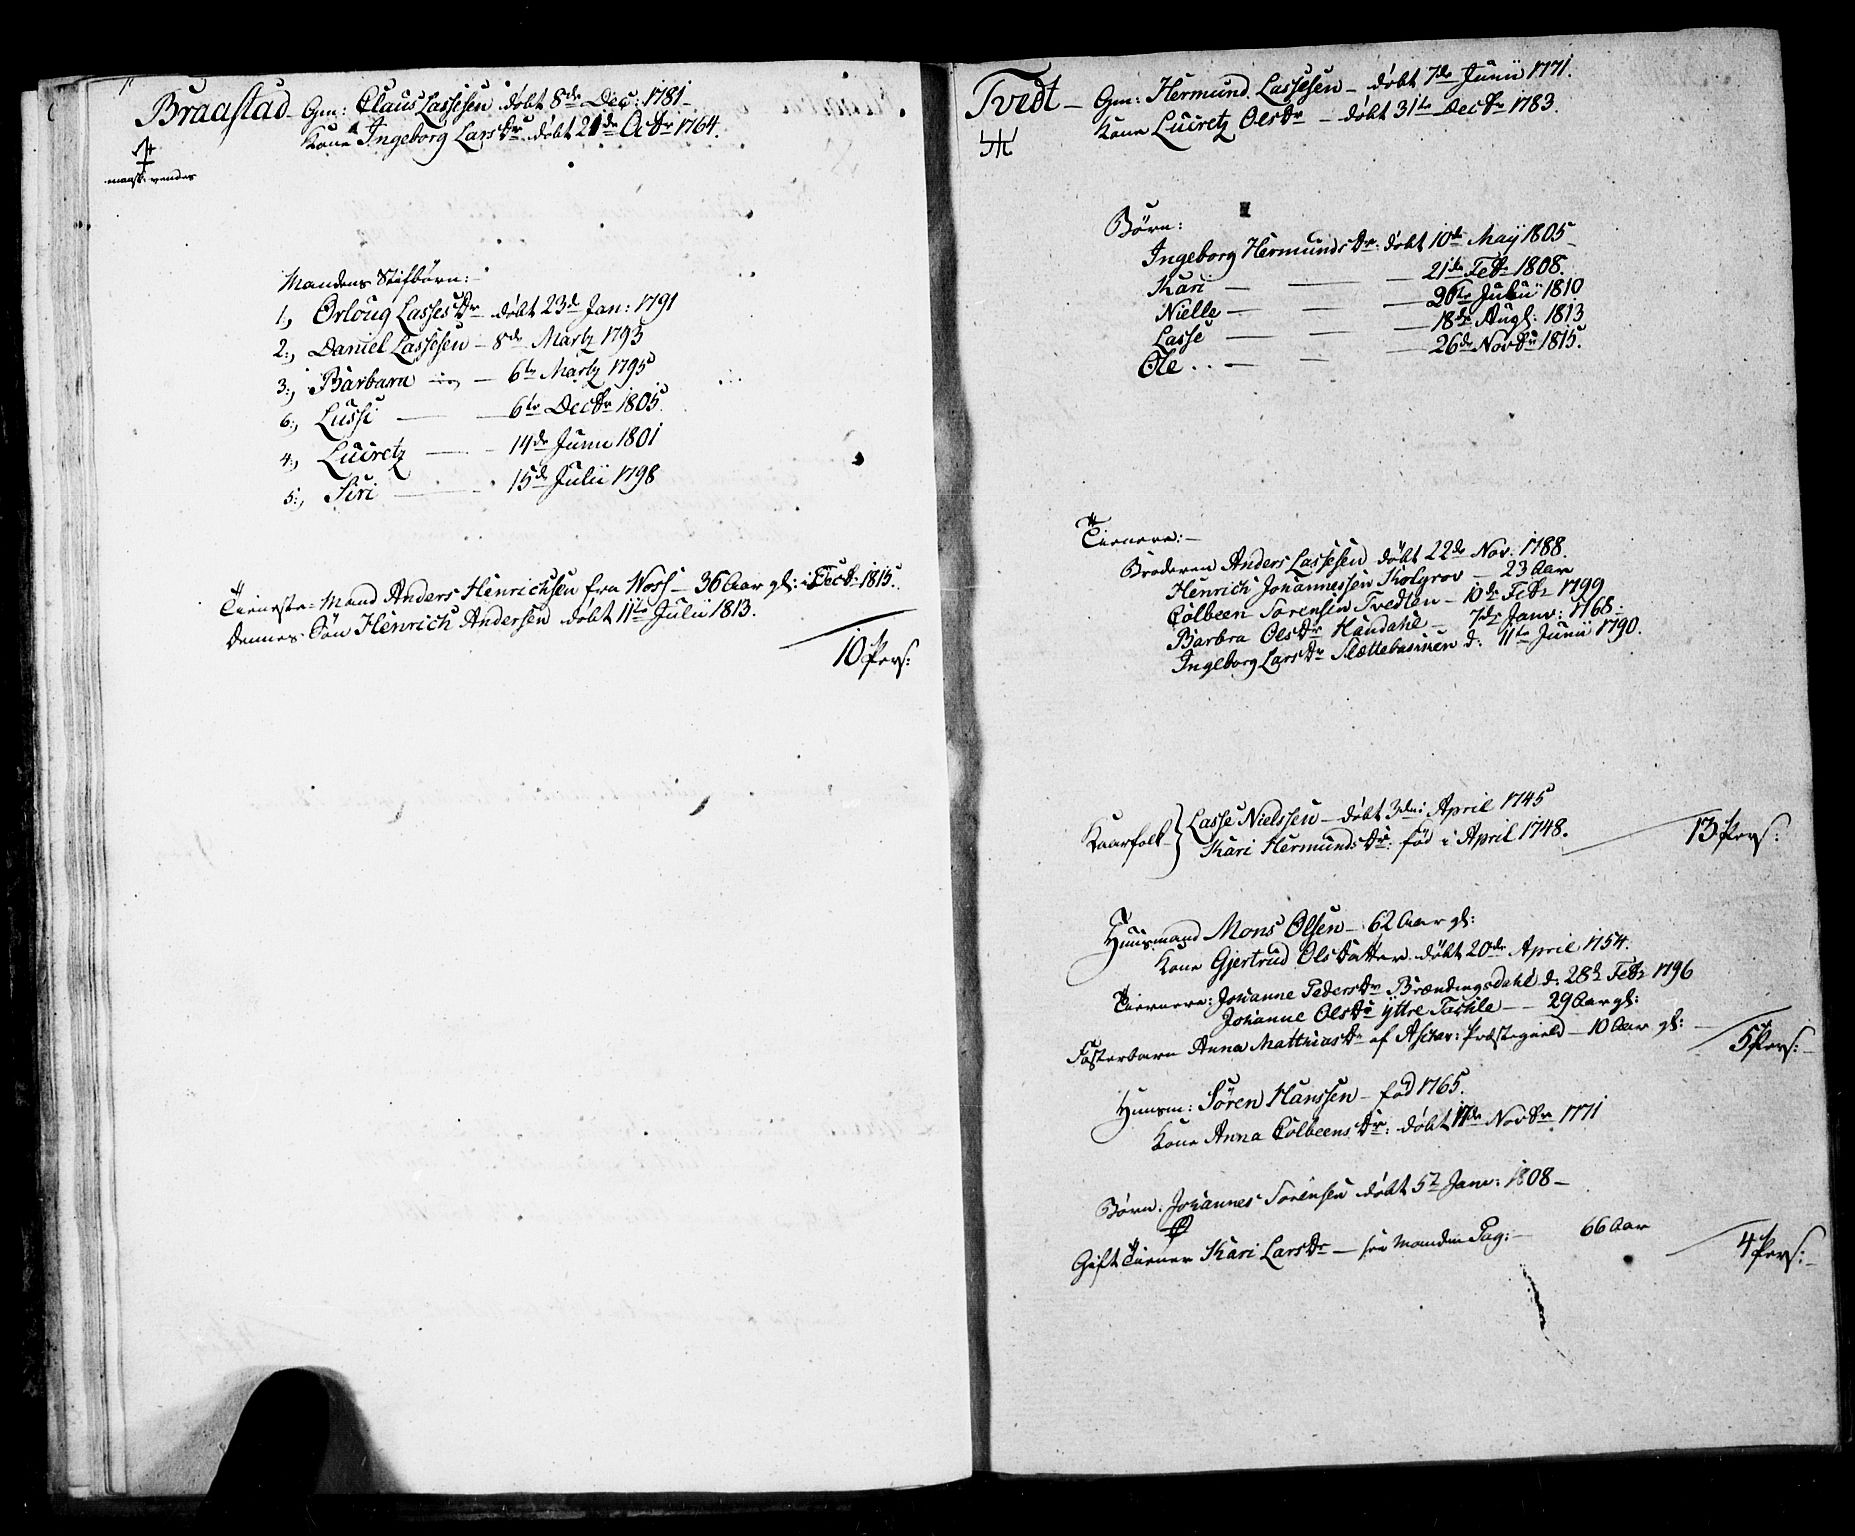 Braastad Gm: Claus Lassesen døbt 8de Dec: 1781
Kone Ingeborg Larsdr døbt 21de Octbr 1764.
maask: vendes
Mandens Stifbörn:
1., Örloug Lassesdr døbt 23d Jan: 1791
2., Daniel Lassesen – 8de Martz 1793
3., Barbara – 6te Martz 1795
6., Lussi – 6te Decbr 1805.
4., Lucretz – 14de Junii 1801
5., Siri – 15de Julii 1798
Tieneste-Mand Anders Henrichsen fra Voss – 36 Aar gl: i Decbr 1815.
Dennes Søn Henrich Andersen døbt 11te Julii 1813.
10 Pers:
Tvedt – Gm: Hermund Lassesen – døbt 7de Junii 1771.
Kone Lucretz Olsdr – døbt 31te Decbr 1783.
Børn:
Ingeborg Hermundsdr: døbt 10de Maÿ 1805
Kari – 21de Febr 1808.
Nielle – 20te Julii 1810
Lasse – 18de Augl: 1813
Ole . . – 26de Novbr 1815.
Tienere:
Broderen Anders Lassesen døbt 22de Nov: 1788.
Henrich Johannessen Kolgrov – 23 Aar
Colbeen Sørensen Tvedten – 10de Febr 1799
Barbra Olsdr Haudahl – 7de Janv: 1768:
Ingeborg Larsdr Slættebackken d: 11te Junii 1790.
Kaarfolk } Lasse Nielssen – døbt 3die April 1745
Kari Hermundsdr: fød i April 1748.
13 Pers:
Huusmand Mons Olsen – 62 Aar gl:
Kone Gjertrud Olsdatter døbt 20de April 1754.
Tienere: Johanne Pedersdr Brændingsdahl d. 28d Febr 1796
Johanne Olsdr ÿttre – 29 Aar gl:
Fosterbarn Anna Matthiasdr af Askev: Præstegield – 10 Aar gl:
5 Pers:
Huusm: Sören Hanssen – fød 1765.
Kone Anna Colbeensdr: døbt 17de Novbr 1771
Børn: Johannes Sørensen døbt 5t Janv: 1808 –
Gift Tiener Kari Larsdr – see Manden Pag: – 66 Aar
4 Pers: